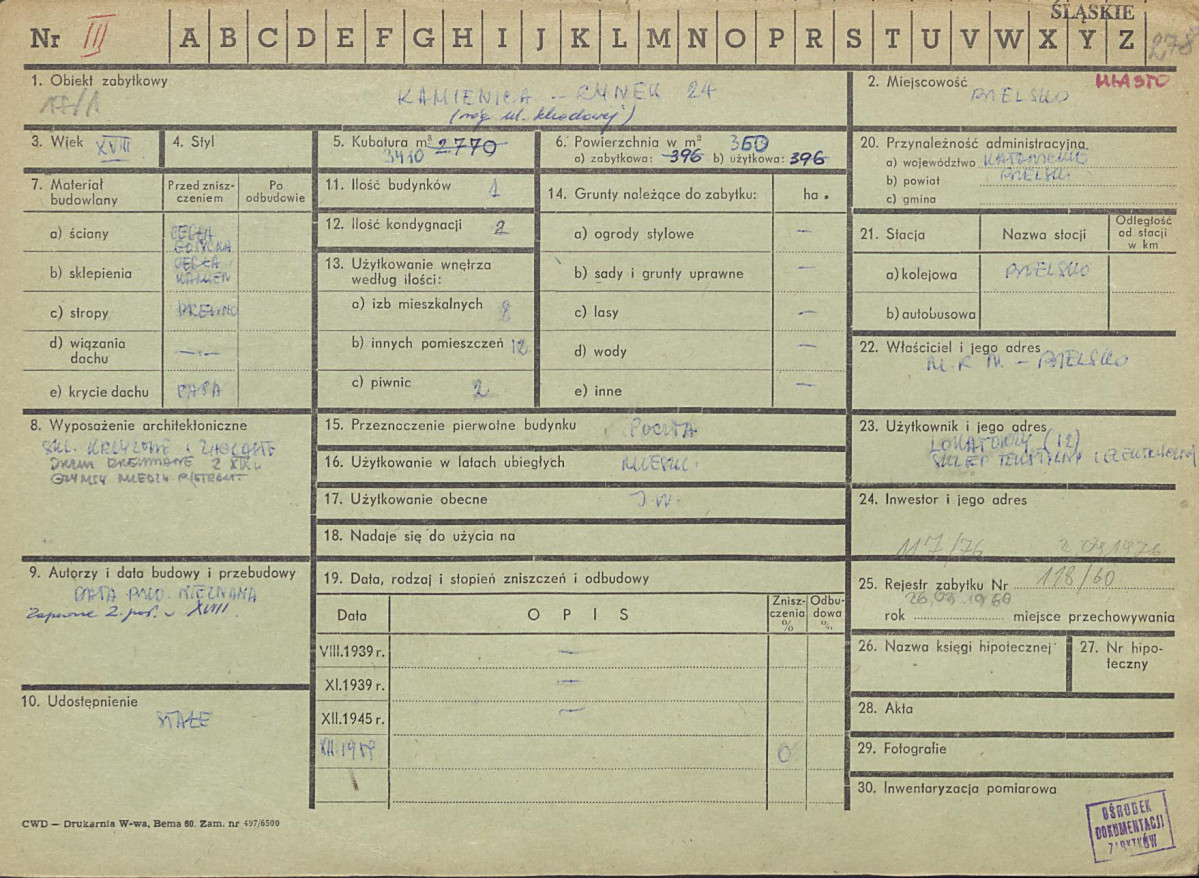 ŚLĄSKIE
Nr III A B C D E F G H I J K L M N O P R S T U V W X Y Z 278
1. Obiekt zabytkowy
KAMIENICA – RYNEK 24
(róg ul. Schodowej)
2. Miejscowość MIASTO
BIELSKO
3. Wiek XVIII
4. Styl
5. Kubatura m³ 2770
3410
6. Powierzchnia w m² 360
a) zabytkowa: 396 b) użytkowa: 396
20. Przynależność administracyjna
a) województwo KATOWICKIE
b) powiat BIELSKI
c) gmina
7. Materiał budowlany
Przed zniszczeniem
Po odbudowie
a) ściany CEGŁA GOTYCKA
b) sklepienia CEGŁA KAMIEŃ
c) stropy DREWNO
d) wiązania dachu —„—
e) krycie dachu PAPA
11. Ilość budynków 1
12. Ilość kondygnacji 2
13. Użytkowanie wnętrza według ilości:
a) izb mieszkalnych 8
b) innych pomieszczeń 12
c) piwnic 2
14. Grunty należące do zabytku: ha.
a) ogrody stylowe —
b) sady i grunty uprawne —
c) lasy —
d) wody —
e) inne —
21. Stacja
Nazwa stacji
Odległość od stacji w km
a) kolejowa BIELSKO
b) autobusowa
22. Właściciel i jego adres
M.R.N. – BIELSKO
8. Wyposażenie architektoniczne
SKL. KRZYŻOWE i ŻAGLASTE
DRZWI DREWNIANE Z XIX w.
GZYMSY MIĘDZY PIĘTRAMI
15. Przeznaczenie pierwotne budynku POCZTA
16. Użytkowanie w latach ubiegłych MIESZK.
17. Użytkowanie obecne J.W.
18. Nadaje się do użycia na
23. Użytkownik i jego adres
LOKATORZY (12)
SKLEP TEKSTYLNY i ELEKTRYCZNY
24. Inwestor i jego adres
117/76
9. Autorzy i data budowy i przebudowy
DATA BUD. NIEZNANA
Zapewne 2. poł. w XVIII.
19. Data, rodzaj i stopień zniszczeń i odbudowy
Data
OPIS
Zniszczenia %
Odbudowa %
VIII.1939 r. —
XI.1939 r. —
XII.1945 r. —
XII.1959 0
25. Rejestr zabytku Nr 118/60
26.03.1960
rok miejsce przechowywania
26. Nazwa księgi hipotecznej
27. Nr hipoteczny
10. Udostępnienie
STAŁE
28. Akta
29. Fotografie
30. Inwentaryzacja pomiarowa
CWD — Drukarnia W-wa, Bema 60. Zam. nr 497/6500
OŚRODEK
DOKUMENTACJI
ZABYTKÓW